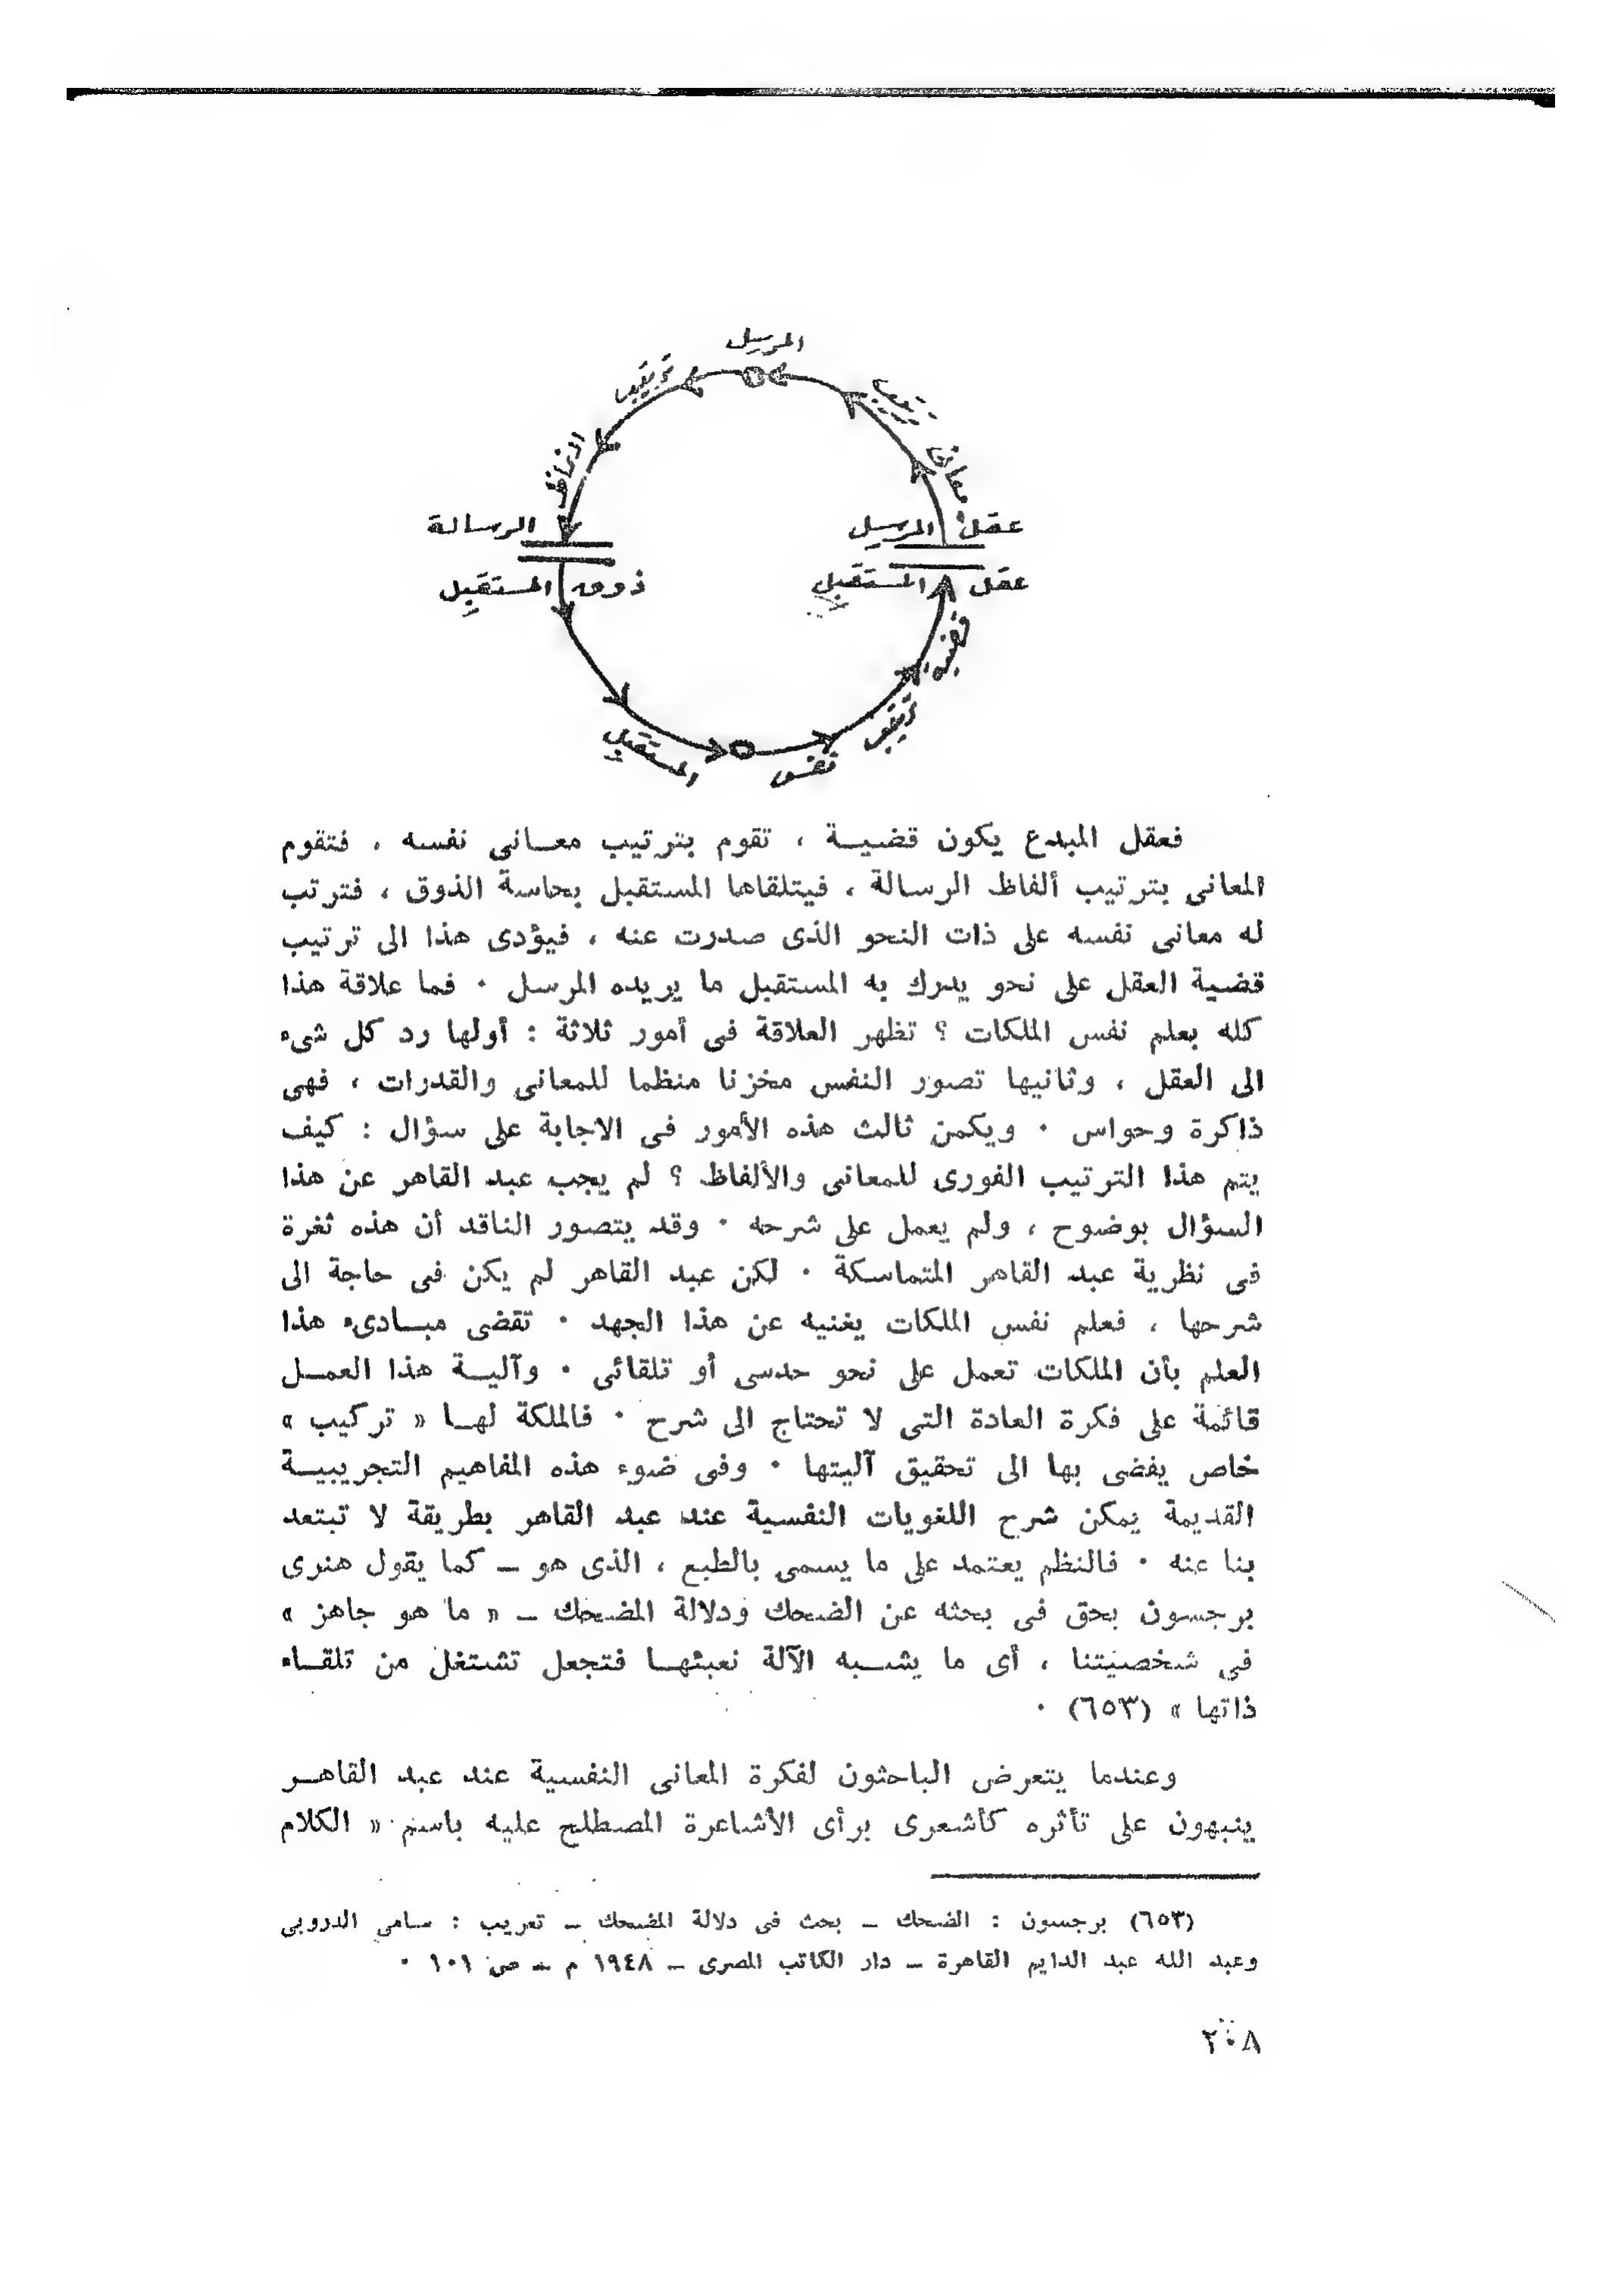 المرسل
ترتيب
ترتيب
ألفاظ
معاني
الرسالة
عقل المرسل
ذوق المستقبل
عقل المستقبل
قضية
ترتيب
المستقبل
نفس
فعقل المبدع يكون قضيـــة ، تقوم بترتيب معــانى نفسه ، فتقوم
المعانى بترتيب ألفاظ الرسالة ، فيتلقاها المستقبل بحاسة الذوق ، فترتب
له معانى نفسه على ذات النحو الذى صدرت عنه ، فيؤدى هذا الى ترتيب
قضية العقل على نحو يدرك به المستقبل ما يريده المرسل · فما علاقة هذا
كله بعلم نفس الملكات ؟ تظهر العلاقة فى أمور ثلاثة : أولها رد كل شىء
الى العقل ، وثانيها تصور النفس مخزنا منظما للمعانى والقدرات ، فهى
ذاكرة وحواس · ويكمن ثالث هذه الأمور فى الاجابة على سؤال : كيف
يتم هذا الترتيب الفورى للمعانى والألفاظ ؟ لم يجب عبد القاهر عن هذا
السؤال بوضوح ، ولم يعمل على شرحه · وقد يتصور الناقد أن هذه ثغرة
فى نظرية عبد القاهر المتماسكة · لكن عبد القاهر لم يكن فى حاجة الى
شرحها ، فعلم نفس الملكات يغنيه عن هذا الجهد · تقضى مبــادىء هذا
العلم بأن الملكات تعمل على نحو حدسى أو تلقائى · وآليــة هذا العمــل
قائمة على فكرة العادة التى لا تحتاج الى شرح · فالملكة لهــا « تركيب »
خاص يفضى بها الى تحقيق آليتها · وفى ضوء هذه المفاهيم التجريبيــة
القديمة يمكن شرح اللغويات النفسية عند عبد القاهر بطريقة لا تبتعد
بنا عنه · فالنظم يعتمد على ما يسمى بالطبع ، الذى هو – كما يقول هنرى
برجسون بحق فى بحثه عن الضحك ودلالة المضحك – « ما هو جاهز »
فى شخصيتنا ، أى ما يشــبه الآلة نعبئهــا فتجعل تشتغل من تلقــاء
ذاتها » (٦٥٣) ·
وعندما يتعرض الباحثون لفكرة المعانى النفسية عند عبد القاهــر
ينبهون على تأثره كأشعرى برأى الأشاعرة المصطلح عليه باسم « الكلام
(٦٥٣) برجسون : الضحك – بحث فى دلالة المضحك – تعريب : سامى الدروبى
وعبد الله عبد الدايم القاهرة – دار الكاتب المصرى – ١٩٤٨ م – ص ١٠١ ·
٢٠٨